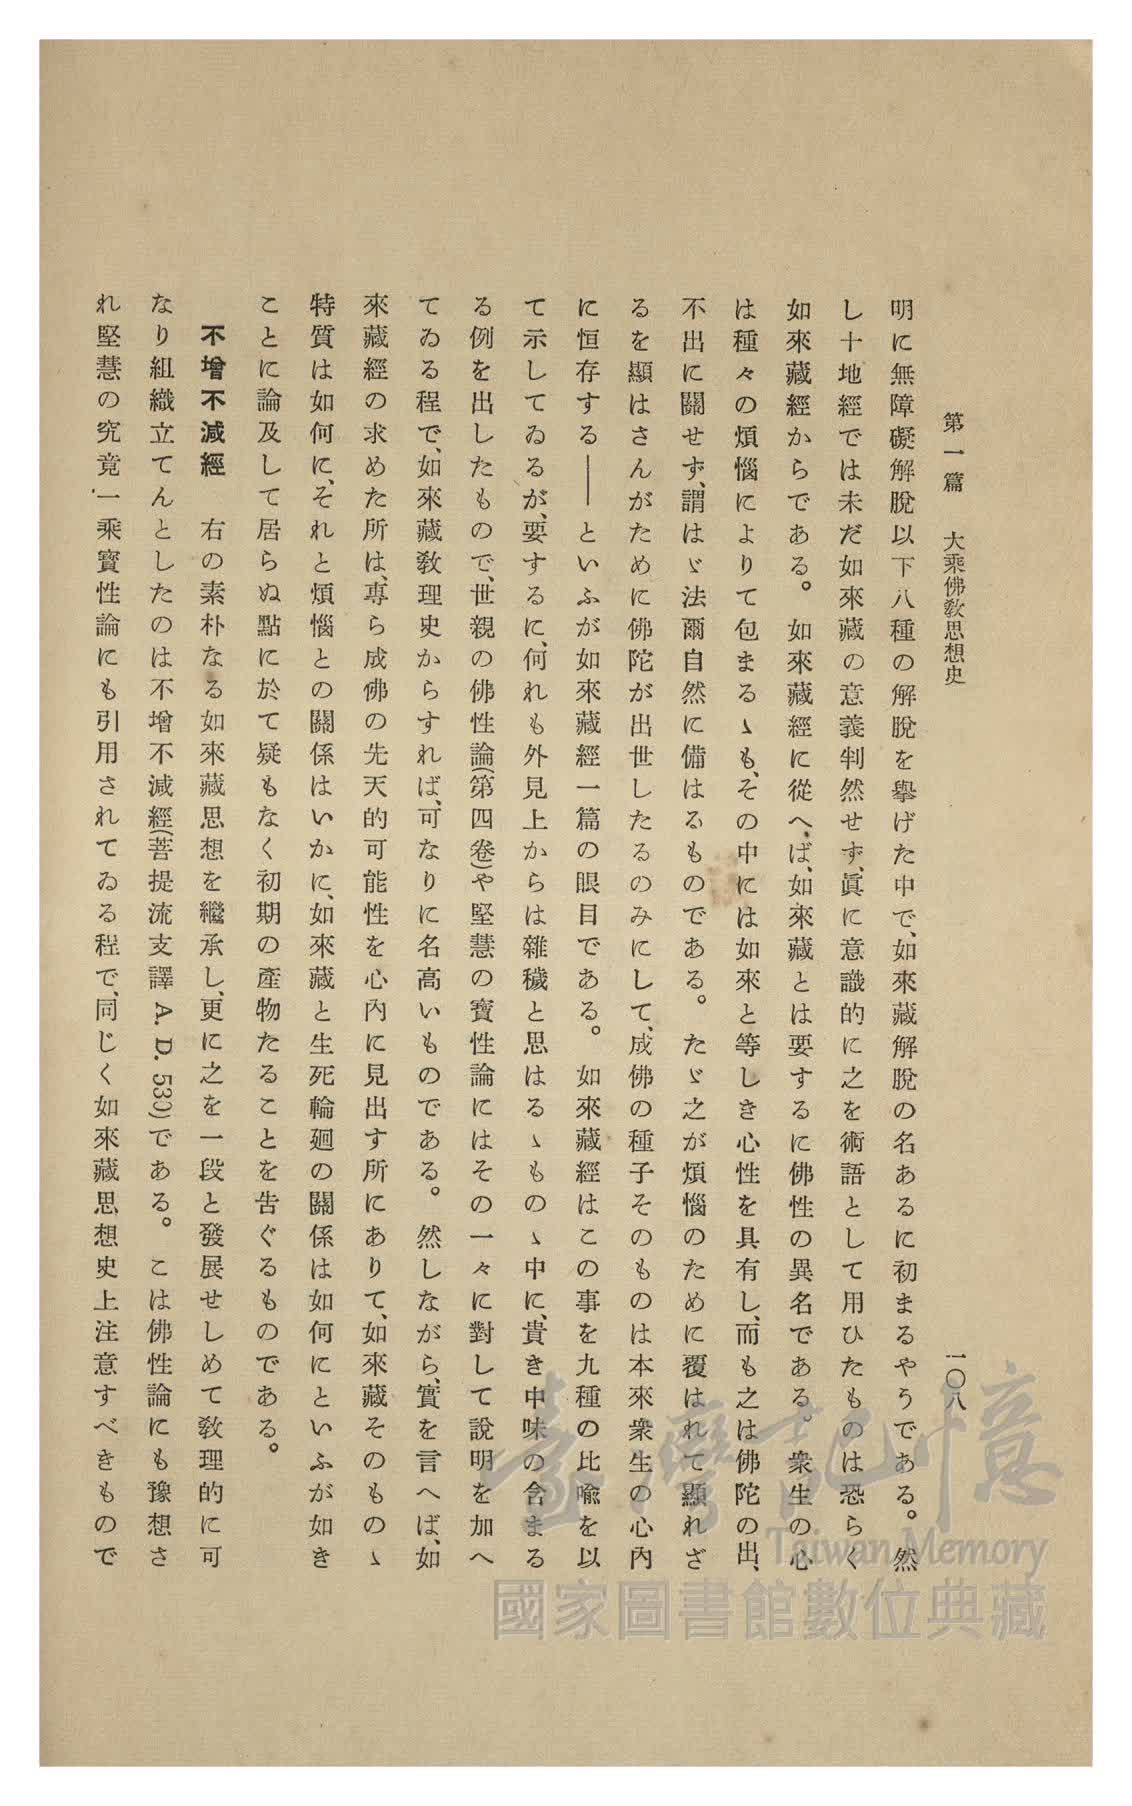 第一篇　大乘佛敎思想史
一〇八
明に無障礙解脫以下八種の解脫を擧げた中で、如來藏解脫の名あるに初まるやうである。然
し十地經では未だ如來藏の意義判然せず、眞に意識的に之を術語として用ひたものは恐らく
如來藏經からである。如來藏經に從へば、如來藏とは要するに佛性の異名である。衆生の心
は種々の煩惱によりて包まるゝも、その中には如來と等しき心性を具有し、而も之は佛陀の出、
不出に關せず、謂はゞ法爾自然に備はるものである。たゞ之が煩惱のために覆はれて顯れざ
るを顯はさんがために佛陀が出世したるのみにして、成佛の種子そのものは本來衆生の心內
に恒存する――といふが如來藏經一篇の眼目である。如來藏經はこの事を九種の比喩を以
て示してゐるが、要するに、何れも外見上からは雜穢と思はるゝものゝ中に、貴き中味の含まる
る例を出したもので、世親の佛性論(第四卷)や堅慧の寶性論にはその一々に對して說明を加へ
てゐる程で、如來藏敎理史からすれば、可なりに名高いものである。然しながら、實を言へば、如
來藏經の求めた所は、專ら成佛の先天的可能性を心內に見出す所にありて、如來藏そのものゝ
特質は如何に、それと煩惱との關係はいかに、如來藏と生死輪廻の關係は如何にといふが如き
ことに論及して居らぬ點に於て疑もなく初期の產物たることを吿ぐるものである。
不增不減經　右の素朴なる如來藏思想を繼承し、更に之を一段と發展せしめて敎理的に可
なり組織立てんとしたのは不增不減經(菩提流支譯 A. D. 530)である。こは佛性論にも豫想さ
れ堅慧の究竟一乘寶性論にも引用されてゐる程で、同じく如來藏思想史上注意すべきもので
臺灣記憶
Taiwan Memory
國家圖書館數位典藏